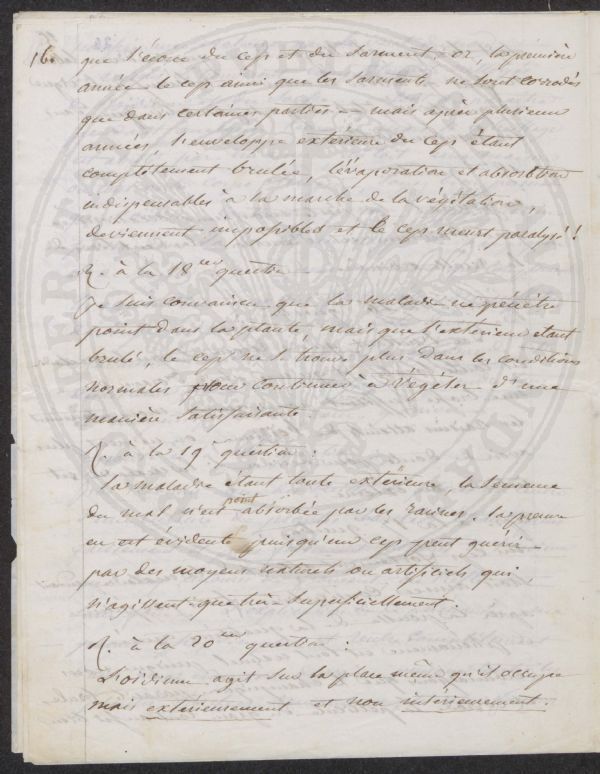 16. que l'écorce du cep et du sarment. or, la première
année le cep ainsi que les sarments ne sont corrodés
que dans certaines parties — mais après plusieurs
années, l'enveloppe extérieure du cep étant
complètement brulée, l'évaporation et absorbtion
indispensables à la marche de la végétation,
deviennent impossibles et le cep meurt paralysé!
R. à la 18eme question
Je suis convaincu que la maladie ne pénètre
point dans la plante, mais que l'extérieur étant
brulé, le cep ne se trouve plus dans les conditions
normales pour continuer à végéter d'une
manière satisfaisante.
R. à la 19e question:
La maladie étant toute extérieure, la semence
du mal n'est point absorbée par les racines. la preuve
en est évidente puisqu'un cep peut guérir
par des moyens naturels ou artificiels qui
n'agissent que très-superficiellement.
R. à la 20eme question:
L'oïdium agit sur la place même qu'il occupe
mais extérieurement et non intérieurement.